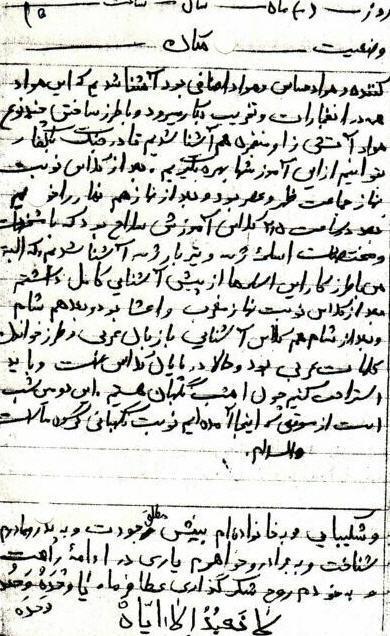 روز ... ( - ) ماه ... سال ... ساعت
وضعیت مکان
کننده و مواد حساس و مواد اضافی بود آشنا شدیم که این مواد
همه در انفجارات و تخریب بکار میرود و با طرز ساختن چند نوع
مواد آتشی زا و منفجره هم آشنا شدیم تا در جنگ با کفار
بتوانیم از این آموزشها بهره بگیریم. بعد از کلاس نوبت
نماز جماعت ظهر و عصر بود و بعد از نماز هم نهار را خوردیم
بعد در ساعت ۲/۵ کلاس آموزشی سلاح بود که با مشخصات
و مختصات اسلحه ژ سه و تیربار ژ سه آشنا شدیم که البته
من با طرز کار این اسلحه‌ها از پیش آشنایی کامل داشتم
بعد از کلاس نوبت نماز مغرب و اعشا بود و بعد هم شام
و بعد از شام هم کلاس آشنایی با زبان عربی و طرز خواندن
کلمات عربی بود و حالا در پایان کلاس است و باید
استراحت کنیم چون امشب نگهبان هستیم. این دومین شب
است از موقعی که اینجا آمده‌ایم نوبت نگهبانی گروه ما است
والسلام.
و شکیبایی و به خانواده‌ام بینش مطلق خودت و به پدر و مادرم
شناخت و به برادر و خواهرم یاری در ادامهٔ راهت
و به خودم روح شکرگذاری عطا فرما، یا وَحْدَهُ وَحْدَهُ
وَحْدَهُ
لا نَعْبُدُ اِلاّ اِیّاهُ